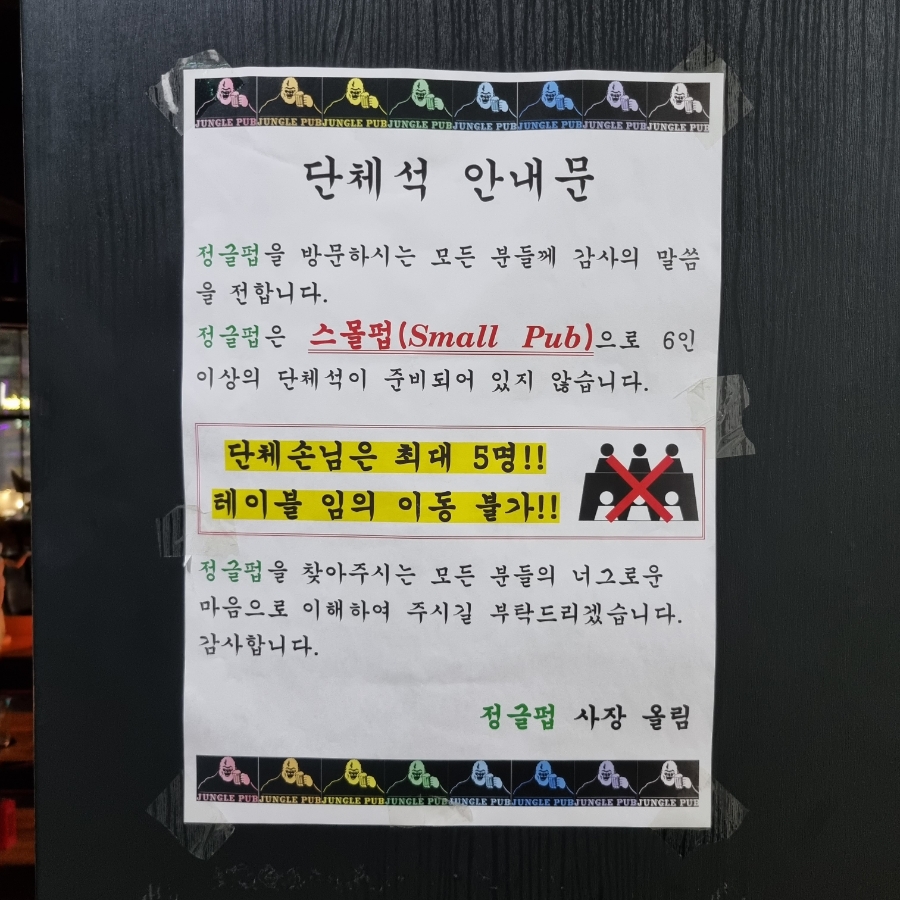 JUNGLE PUB JUNGLE PUB JUNGLE PUB JUNGLE PUB JUNGLE PUB JUNGLE PUB JUNGLE PUB JUNGLE PUB
단체석 안내문
정글펍을 방문하시는 모든 분들께 감사의 말씀
을 전합니다.
정글펍은 스몰펍(Small Pub)으로 6인
이상의 단체석이 준비되어 있지 않습니다.
단체손님은 최대 5명!!
테이블 임의 이동 불가!!
정글펍을 찾아주시는 모든 분들의 너그로운
마음으로 이해하여 주시길 부탁드리겠습니다.
감사합니다.
정글펍 사장 올림
JUNGLE PUB JUNGLE PUB JUNGLE PUB JUNGLE PUB JUNGLE PUB JUNGLE PUB JUNGLE PUB JUNGLE PUB